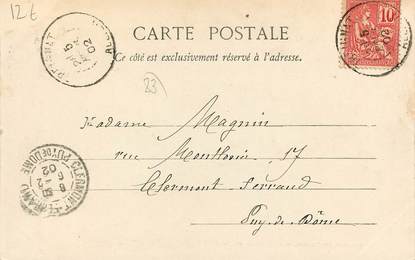 12 €
CARTE POSTALE
Ce côté est exclusivement réservé à l'adresse.
10
23
Madame Magnin
rue Montlosier 17
Clermont Ferrand
Puy-de-Dôme
CLERMONT-FERRAND
PUY DE DOME
02